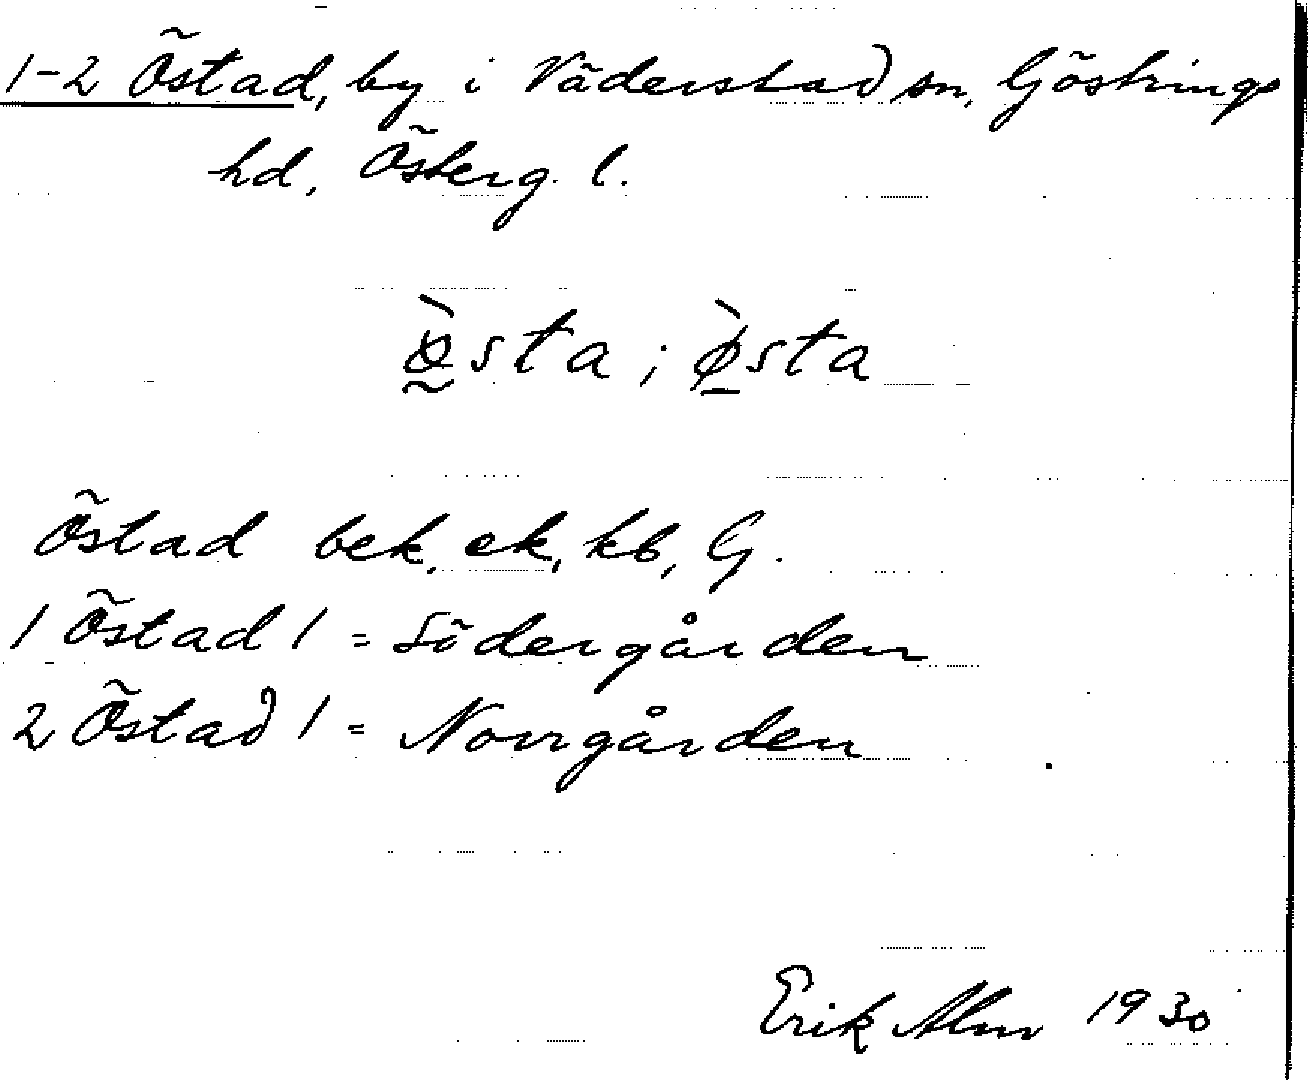 1-2 Östad, by i Väderstad sn, Göstrings
hd, Österg. l.
ø̀sta; ø̀sta
Östad bek, ek, kb, G.
1 Östad 1 = Södergården
2 Östad 1 = Norrgården
Erik Alm 1930